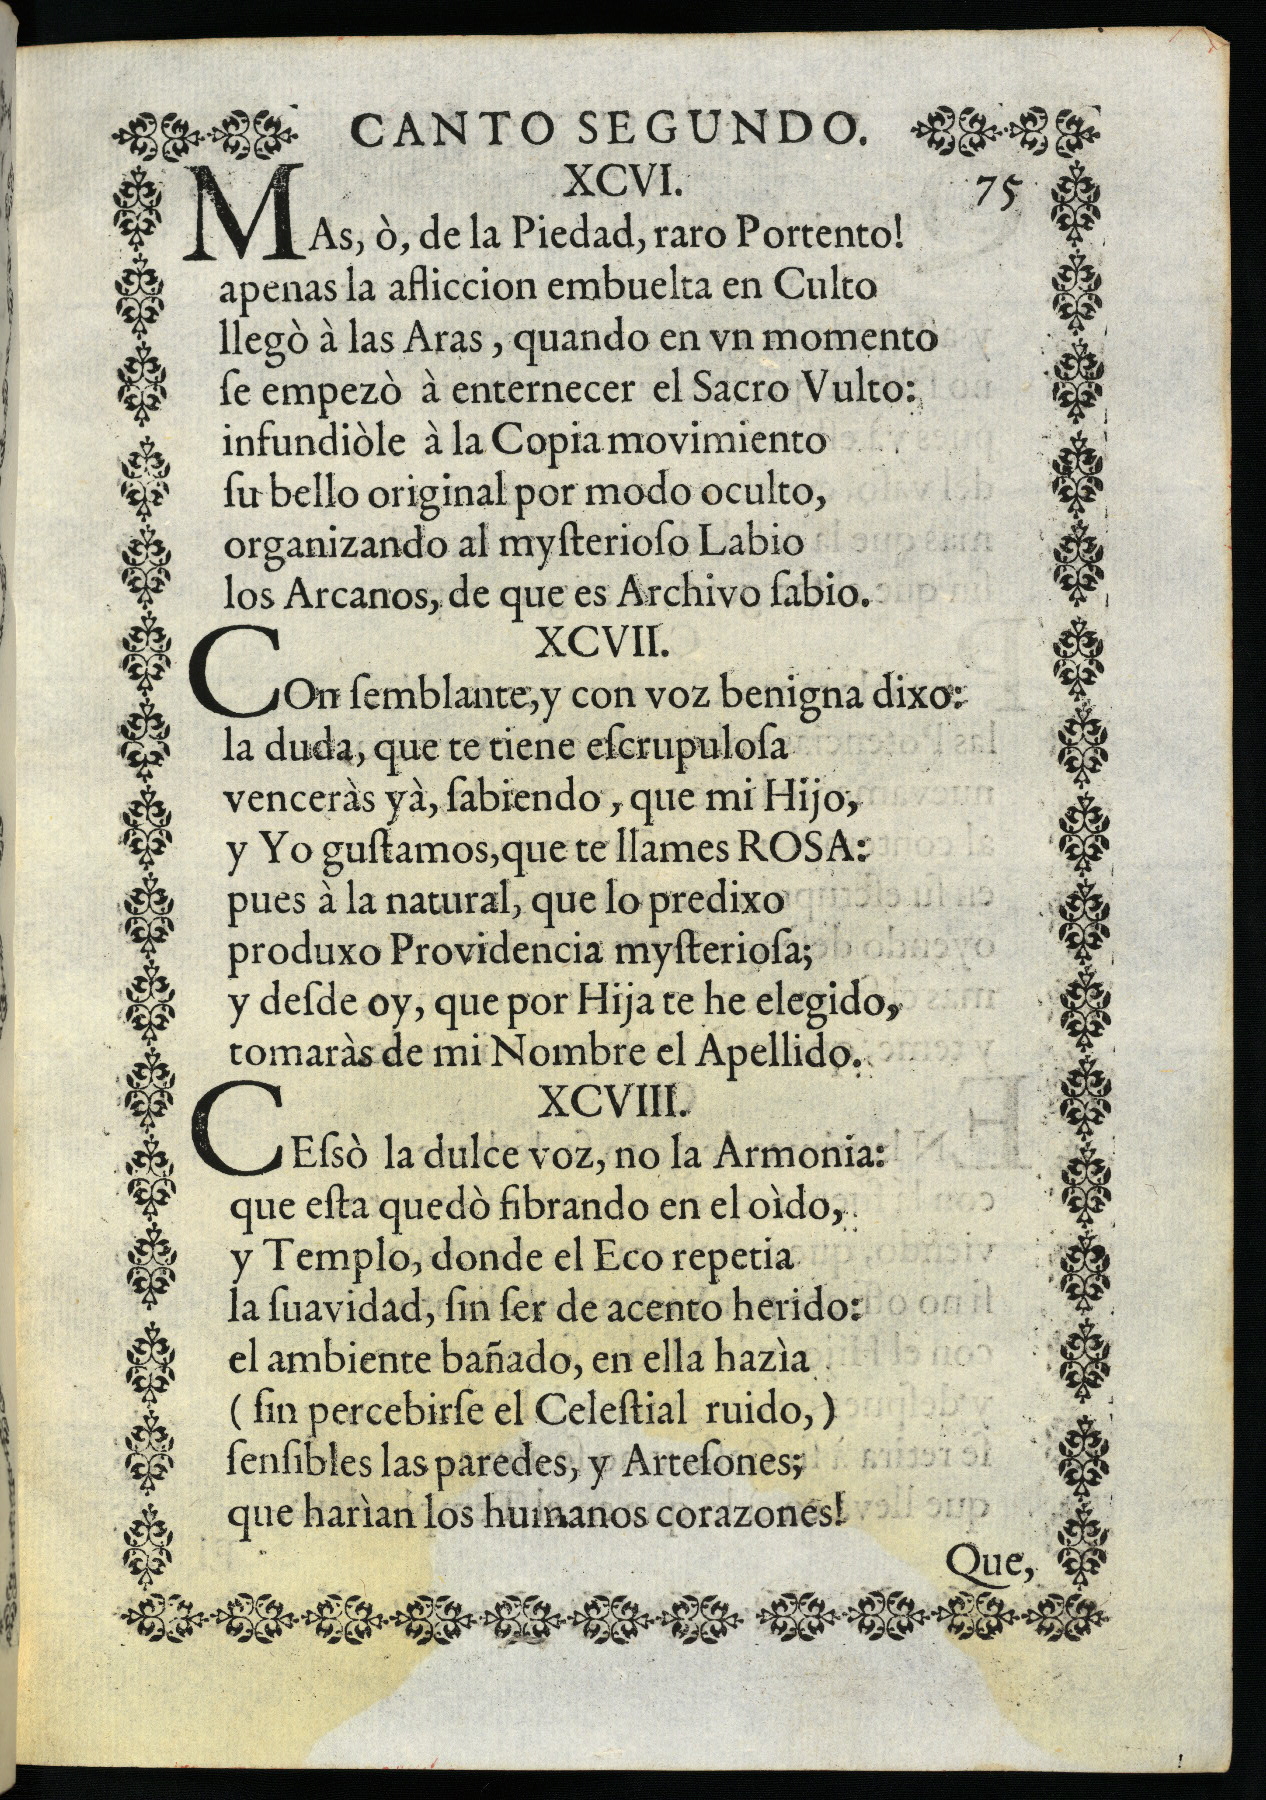 CANTO SEGUNDO.
XCVI.
75
MAs, ò, de la Piedad, raro Portento!
apenas la afliccion embuelta en Culto
llegò à las Aras, quando en vn momento
ſe empezò à enternecer el Sacro Vulto:
infundiòle à la Copia movimiento
ſu bello original por modo oculto,
organizando al myſterioſo Labio
los Arcanos, de que es Archivo ſabio.
XCVII.
COn ſemblante, y con voz benigna dixo:
la duda, que te tiene eſcrupuloſa
venceràs yà, ſabiendo, que mi Hijo,
y Yo guſtamos, que te llames ROSA:
pues à la natural, que lo predixo
produxo Providencia myſterioſa;
y deſde oy, que por Hija te he elegido,
tomaràs de mi Nombre el Apellido.
XCVIII.
CEſsò la dulce voz, no la Armonia:
que eſta quedò fibrando en el oìdo,
y Templo, donde el Eco repetia
la ſuavidad, ſin ſer de acento herido:
el ambiente bañado, en ella hazìa
(ſin percebirſe el Celeſtial ruido,)
ſenſibles las paredes, y Arteſones;
que harìan los humanos corazones!
Que,